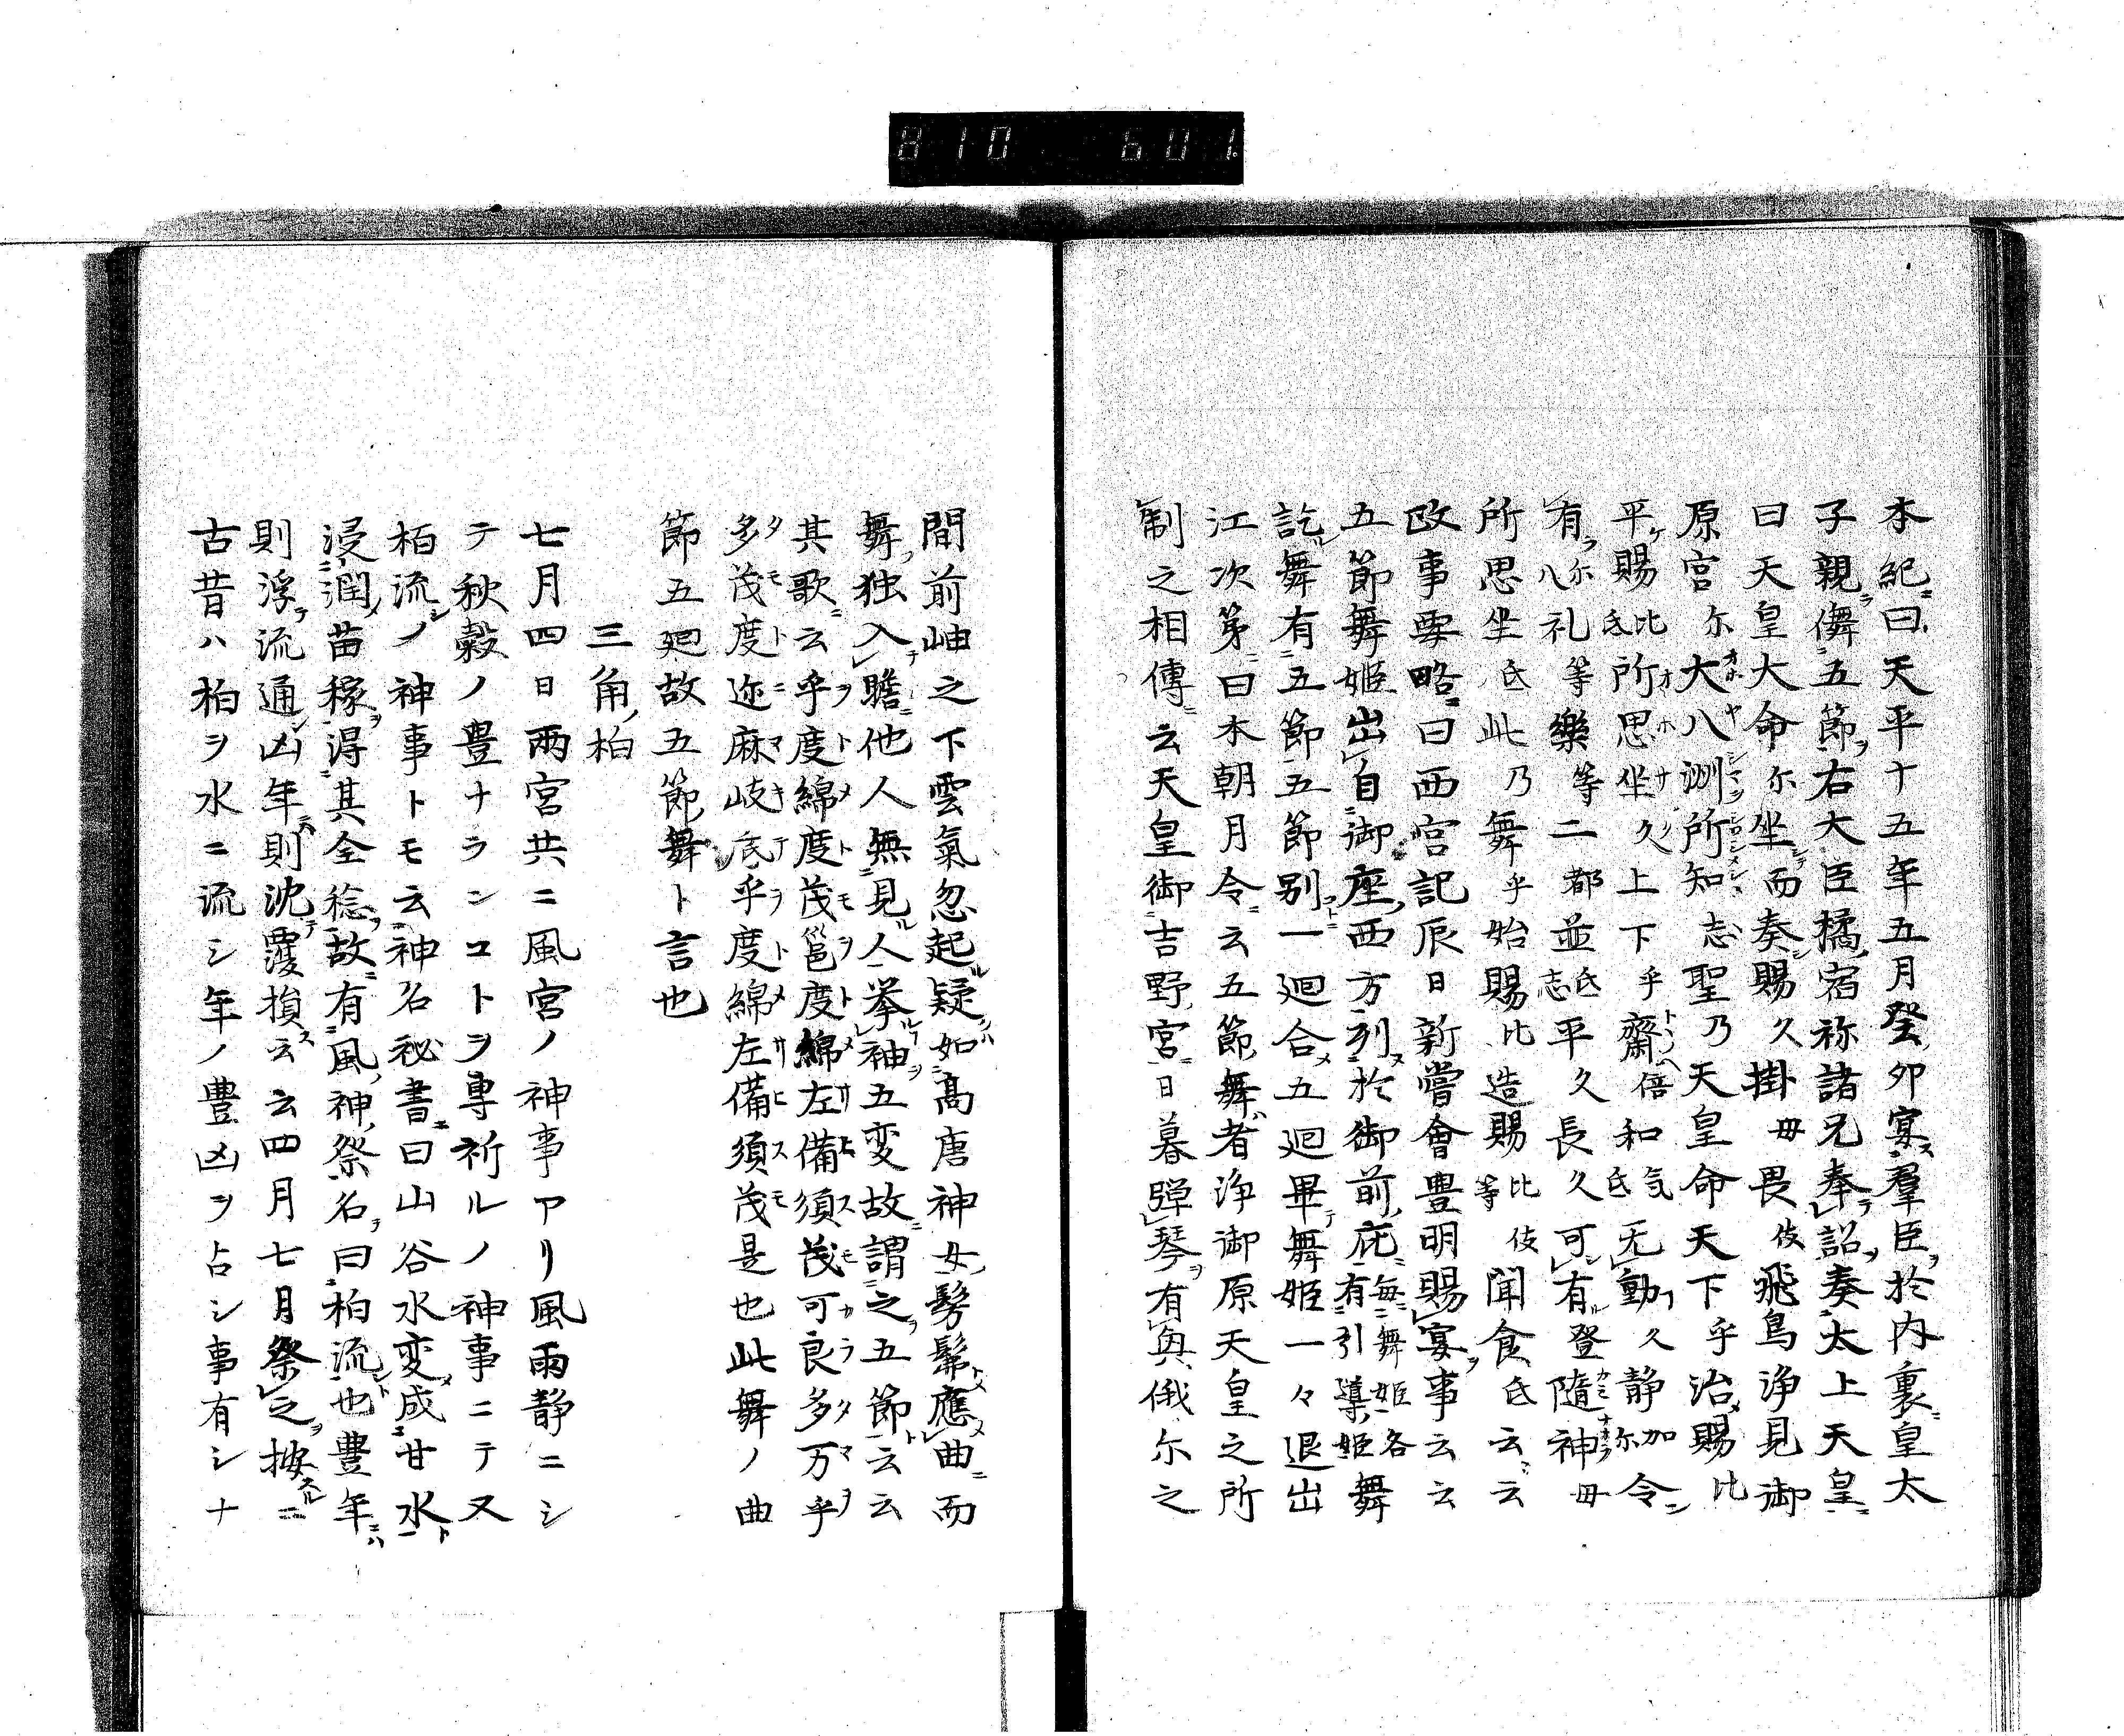 810 601.
本紀曰天平十五年五月癸卯宴羣臣於内裏皇太
子親儛五節右大臣橘宿祢諸兄奉詔奏太上天皇
曰天皇大命尓坐而奏賜久掛毋畏伎飛鳥浄見御
原宮尓大八洲所知志聖乃天皇命天下乎治賜比
平賜比氐所思坐久上下乎齋倍和気氐无動久静加尓令
有尓八礼等樂等二都並氐志平久長久可有登隨神毋
所思坐氐此乃舞乎始賜比造賜比等伎聞食氐云云
政事要略曰西宮記辰日新嘗會豊明賜宴事云云
五節舞姫出自御座西方列於御前庇毎舞姫各有引導姫舞
訖舞有五節五節别一廻合五廻畢舞姫一々退出
江次第曰本朝月令云五節舞者浄御原天皇之所
制之相傳云天皇御吉野宮日暮弾琴有興俄尓之
間前岫之下雲氣忽起疑如高唐神女髣髴應曲而
舞独入瞻他人無見人挙袖五変故謂之五節云云
其歌云乎度綿度茂邕度綿左備須茂可良多万乎
多茂度迩麻岐底乎度綿左備須茂是也此舞ノ曲
節五廻故五節舞ト言也
三角柏
七月四日兩宮共ニ風宮ノ神事アリ風雨静ニシ
テ秋穀ノ豊ナランコトヲ専祈ルノ神事ニテ又
栢流ノ神事トモ云神名秘書曰山谷水変成甘水
浸潤苗稼得其全稔故有風神祭名曰柏流也豊年
則浮流通凶年則沈覆損云云四月七月祭之按ニ
古昔ハ柏ヲ水ニ流シ年ノ豊凶ヲ占シ事有シナ